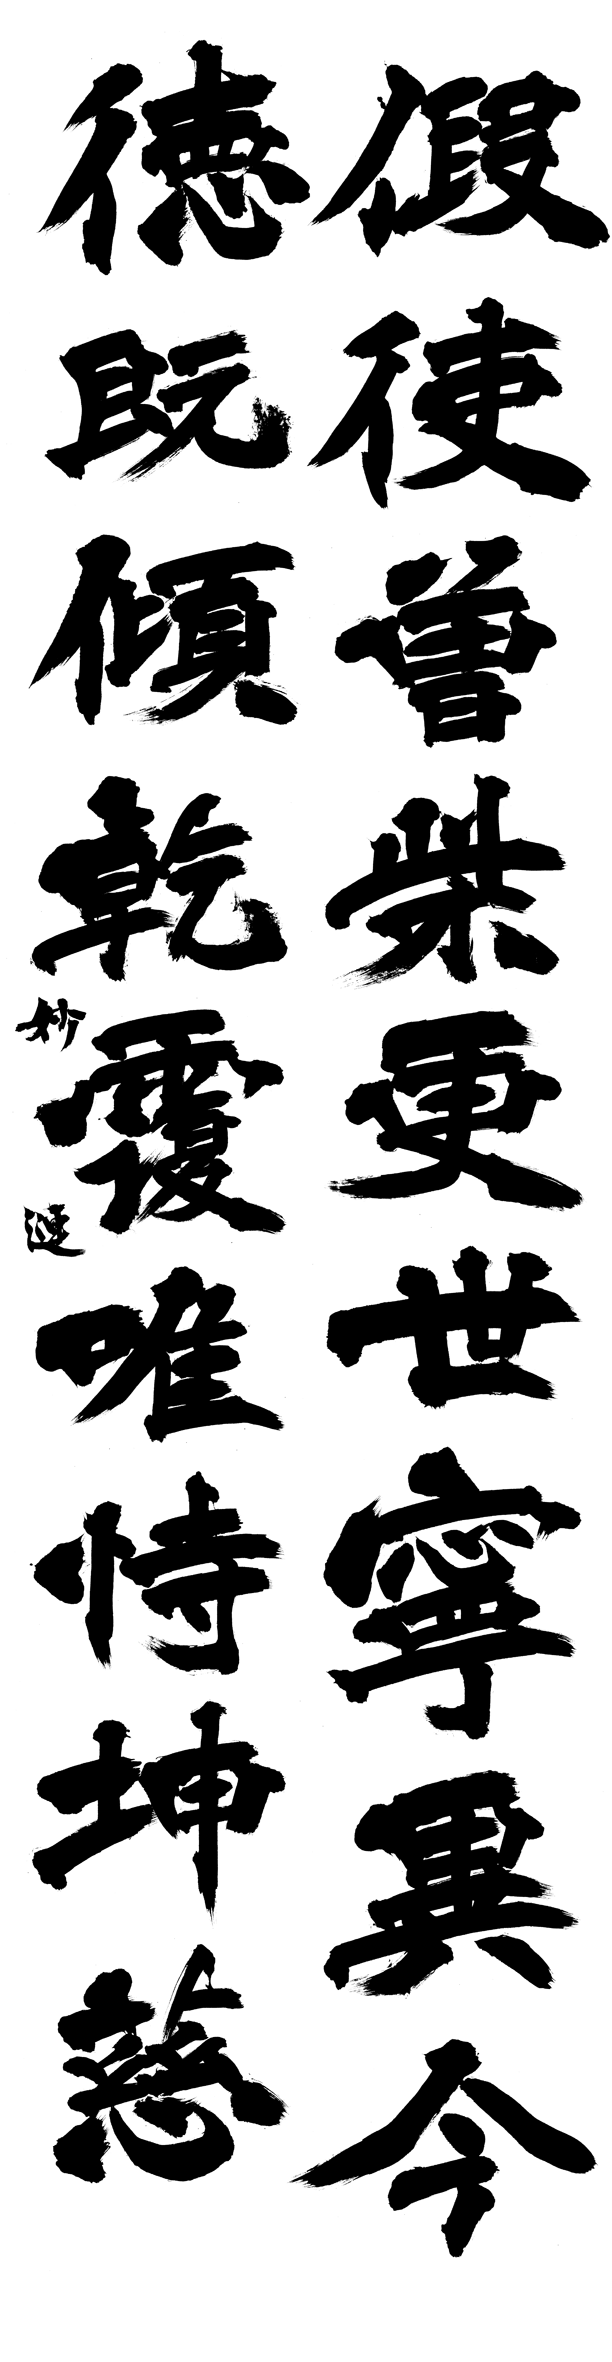 假使曾柴更世寧異今
徳既傾乾覆唯恃坤慈
妙漣